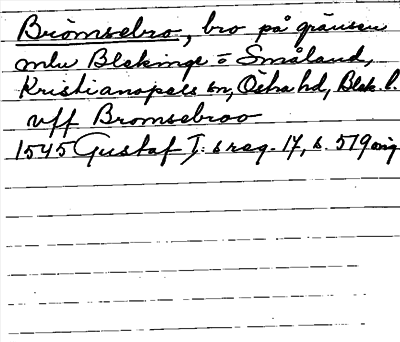 Brömsebro, bro på gränsen
mlu Blekinge = Småland,
Kristianopels sn, Östra hd, Blek. l.
vff Bromsebroo
1545 Gustaf I: s reg. 17, s. 579 orig